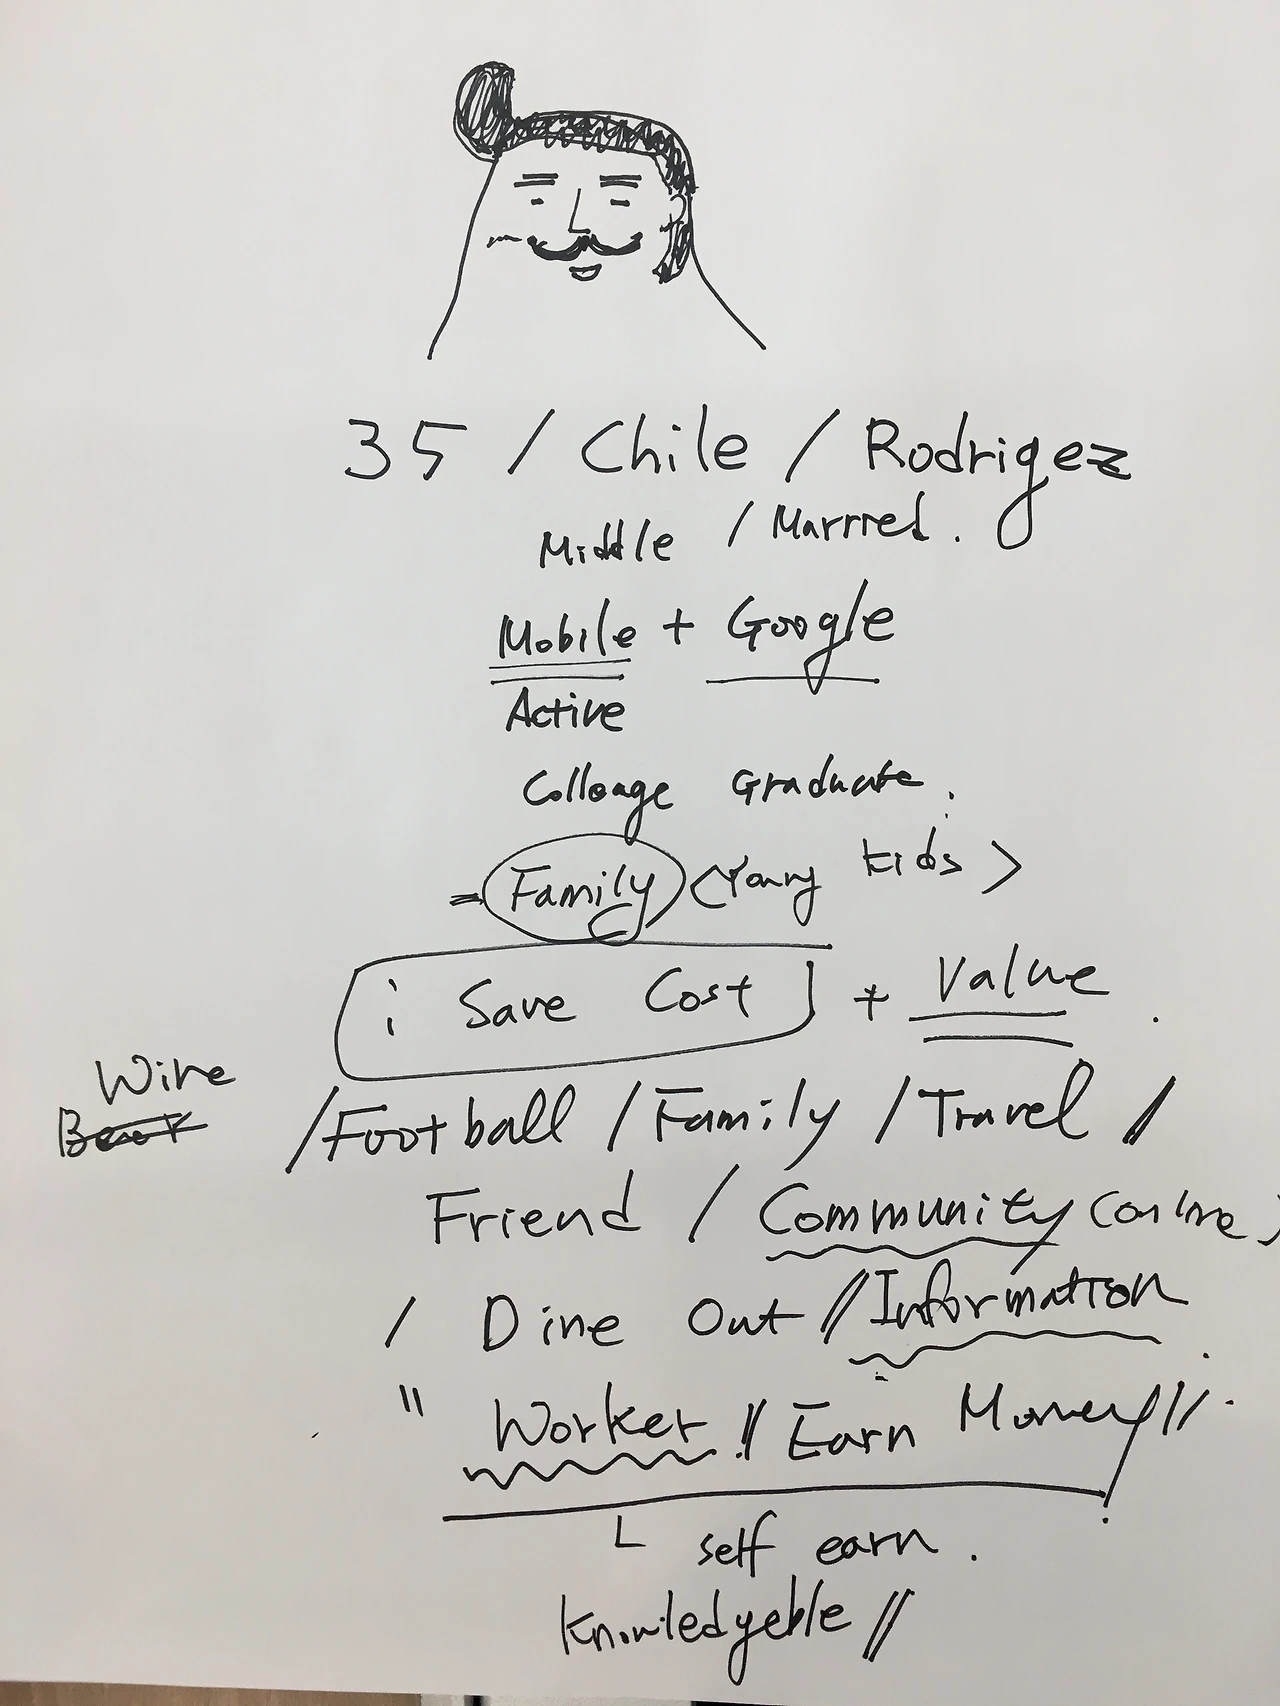 35 / Chile / Rodrigez
Middle / Marrred.
Mobile + Google
Active
Colloage Graduate.
= Family <Young kids>
i Save Cost + Value.
Wine
/Football / Family / Travel /
Friend / Community (online)
/ Dine Out // Information
" Worker // Earn Money //.
└ self earn.
knowledgeble //